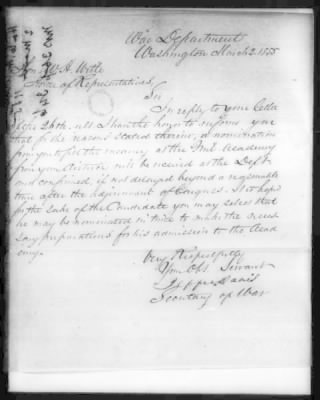 War Department
Washington March 2 1855
Hon. W. H. Witte
House of Representatives,
Sir,
In reply to your letter
of the 26th. ult I have the honor to inform you
that for the reason stated therein, a nomination
from you to fill the vacancy at the Mil Academy
from your District will be received at the Dept.
and confirmed, if not delayed beyond a reasonable
time after the adjournment of Congress. It is hoped
for the sake of the Candidate you may select that
he may be nominated in time to make the neces
sary preparations for his admission to the Acad
emy.
Very Respectfully
Your Obt. Servant
Jeffer Davis
Secretary of War